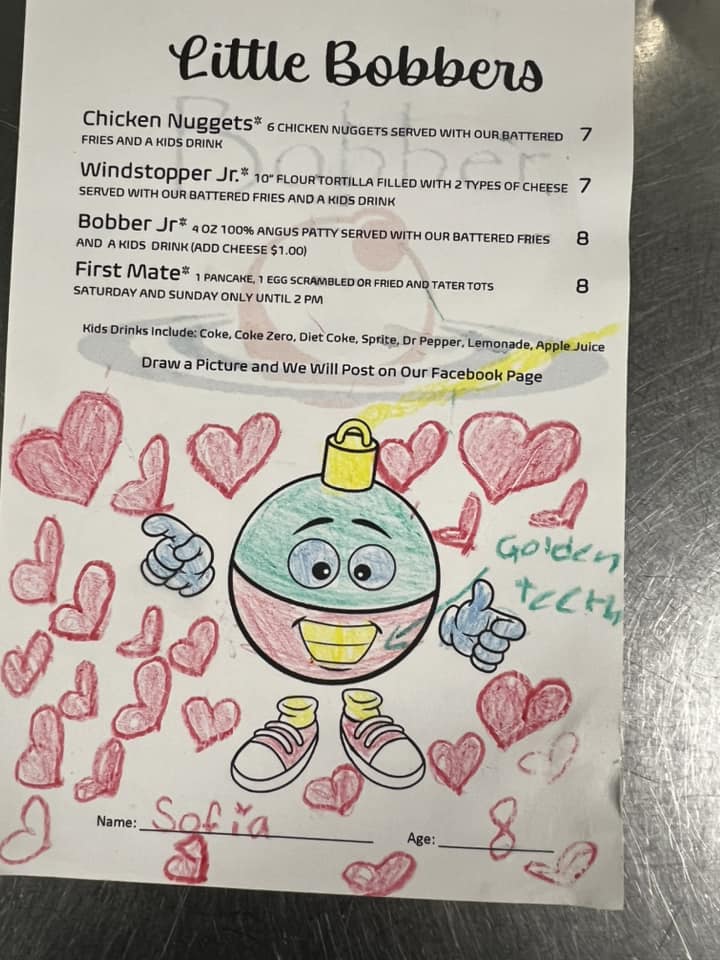 Little Bobbers
Chicken Nuggets* 6 CHICKEN NUGGETS SERVED WITH OUR BATTERED 7
FRIES AND A KIDS DRINK
Windstopper Jr.* 10" FLOUR TORTILLA FILLED WITH 2 TYPES OF CHEESE 7
SERVED WITH OUR BATTERED FRIES AND A KIDS DRINK
Bobber Jr* 4 OZ 100% ANGUS PATTY SERVED WITH OUR BATTERED FRIES 8
AND A KIDS DRINK (ADD CHEESE $1.00)
First Mate* 1 PANCAKE, 1 EGG SCRAMBLED OR FRIED AND TATER TOTS 8
SATURDAY AND SUNDAY ONLY UNTIL 2 PM
Kids Drinks Include: Coke, Coke Zero, Diet Coke, Sprite, Dr Pepper, Lemonade, Apple Juice
Draw a Picture and We Will Post on Our Facebook Page
Golden
teeth
Name: Sofia Age: 8